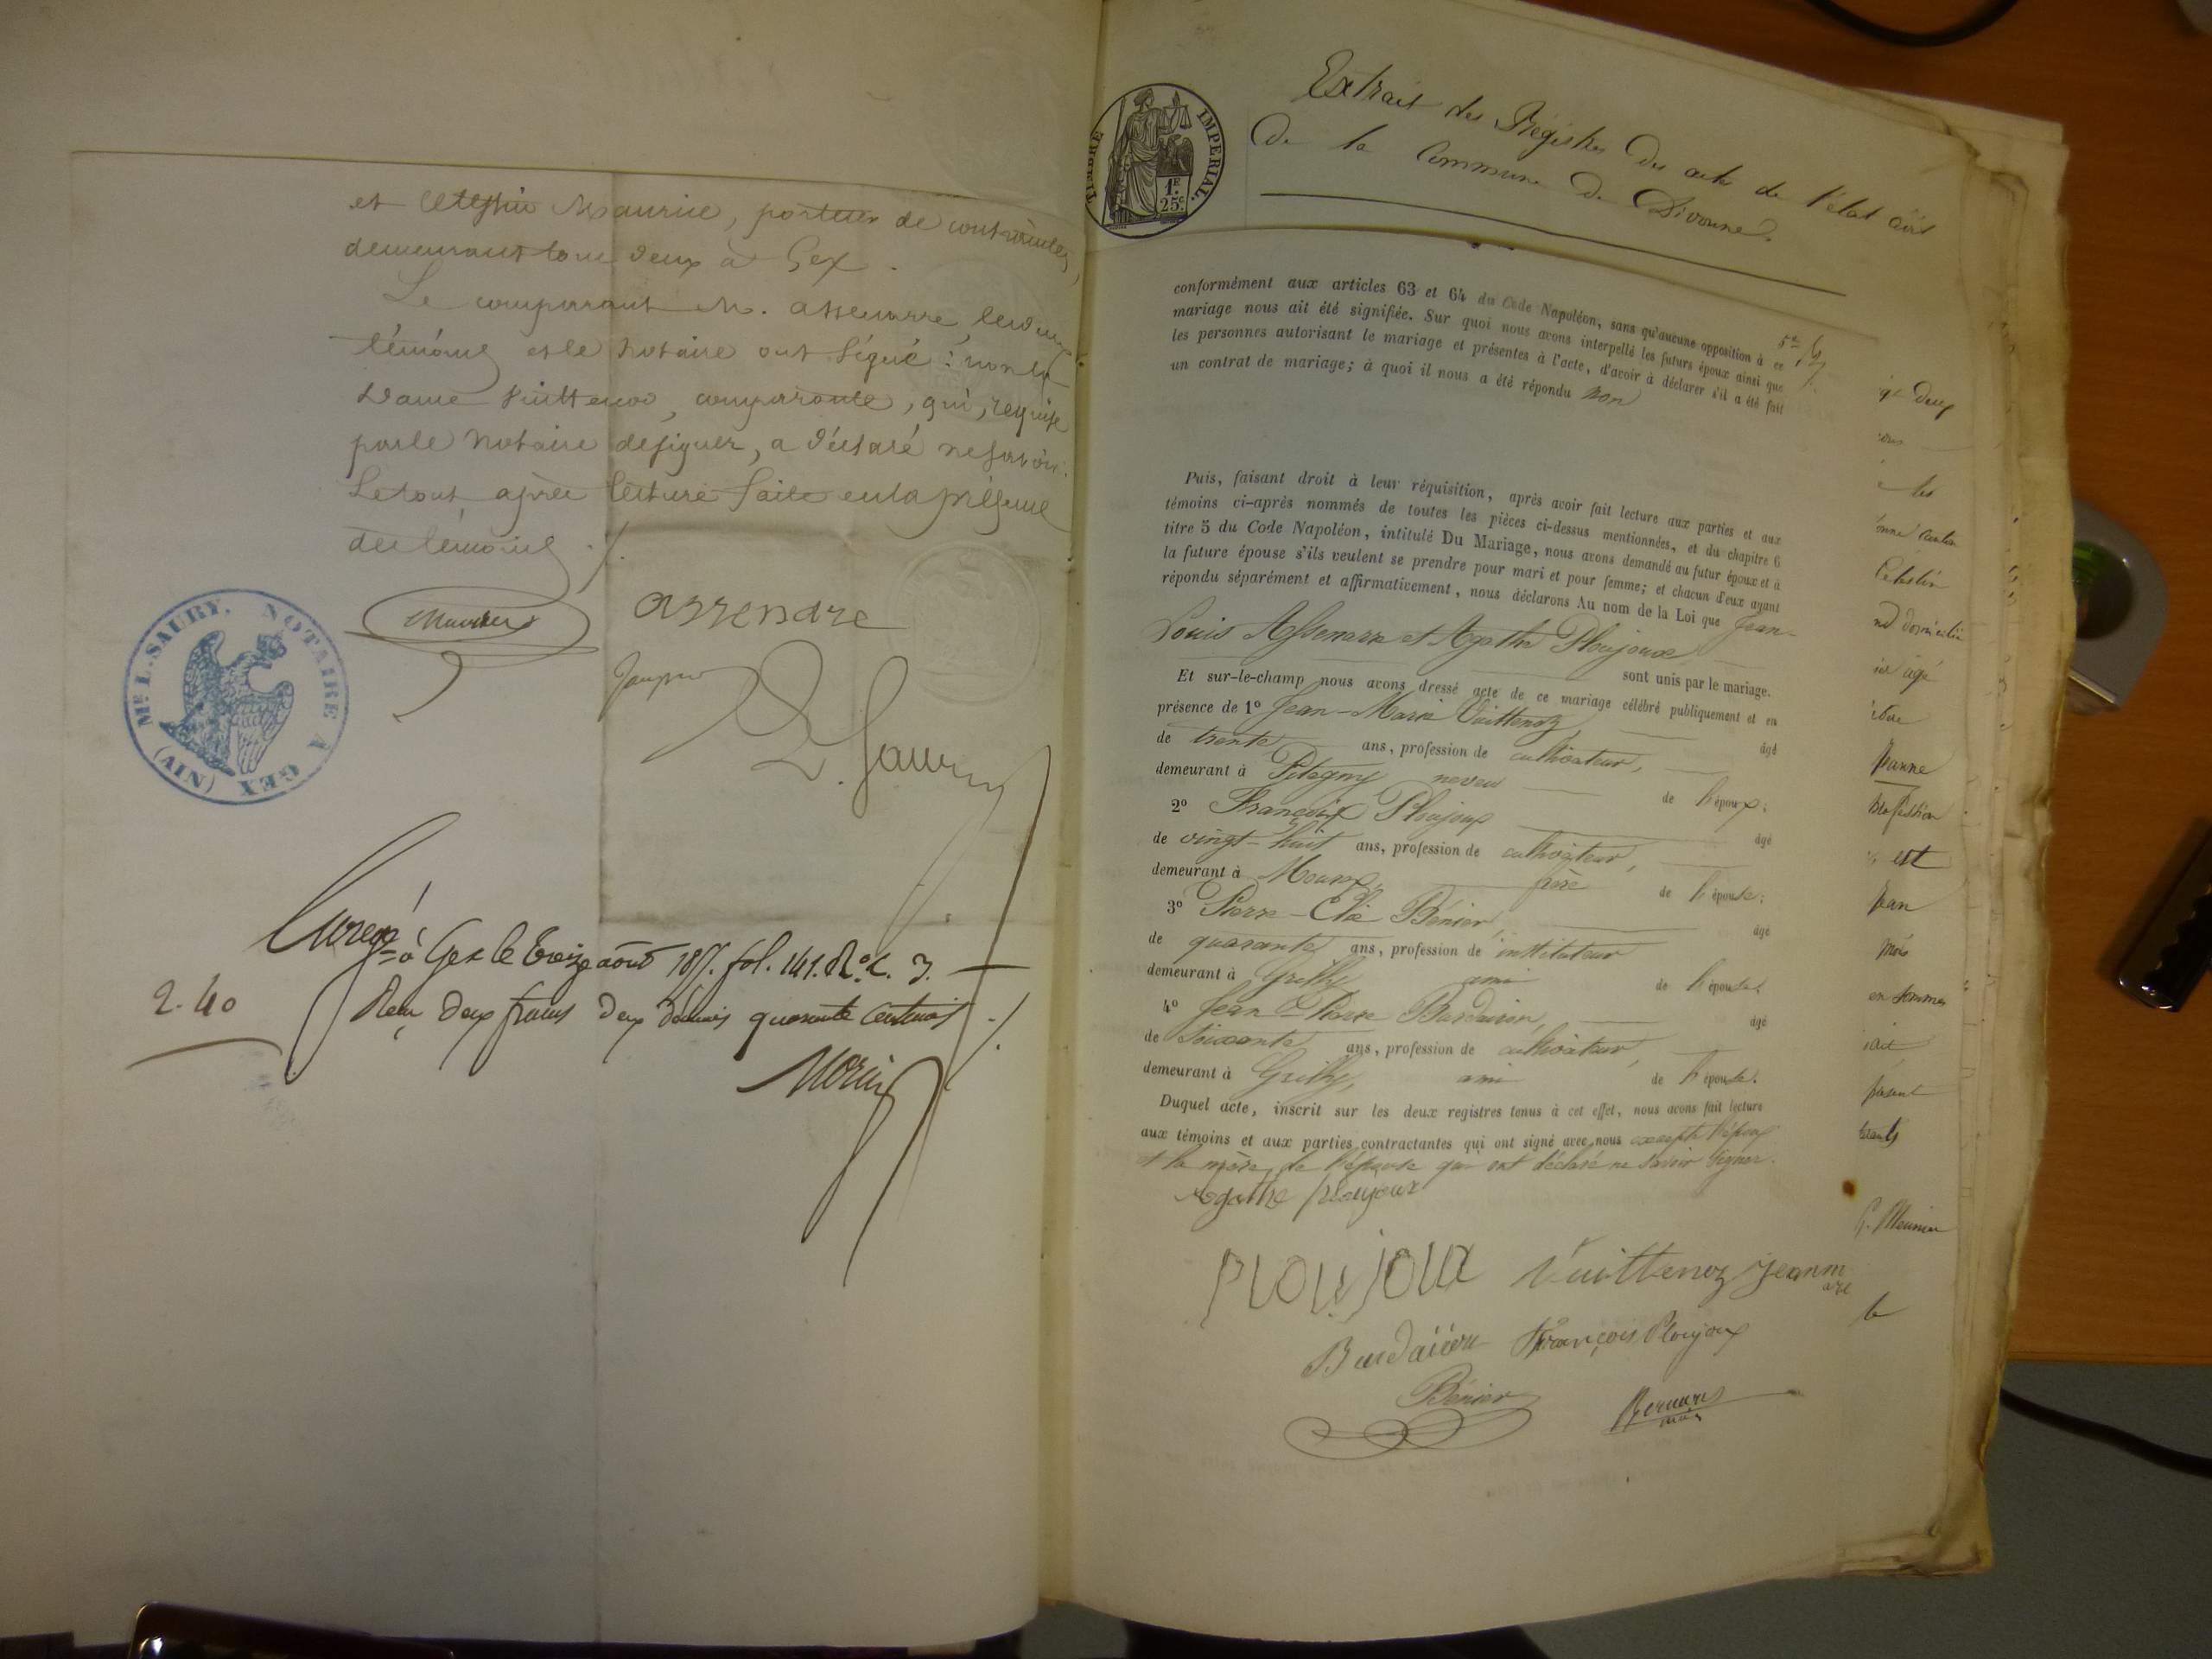 et Maurice, porteur de contraintes,
demeurant tous deux à Gex.
Le comparant M. assenarre, les deux
témoins et le Notaire ont signé : non la
Dame Vuittenoz, comparante, qui, requise
par le Notaire de signer, a déclaré ne savoir.
Le tout après lecture faite en la présence
des témoins ./.
Me L. SAURY. NOTAIRE A GEX (AIN)
L. Saury
à Gex le treize août fol. 141. Ro. C. 7.
2.40
Reçu deux francs deux décimes quarante centimes ./.
Morin
TIMBRE IMPERIAL.
1F. 25c.
Extrait des Régistres des actes de l'état civil
De la Commune de Divonne.
conformément aux articles 63 et 64 du Code Napoléon, sans qu'aucune opposition à ce
mariage nous ait été signifiée. Sur quoi nous avons interpellé les futurs époux ainsi que
les personnes autorisant le mariage et présentes à l'acte, d'avoir à déclarer s'il a été fait
un contrat de mariage; à quoi il nous a été répondu Non
Puis, faisant droit à leur réquisition, après avoir fait lecture aux parties et aux
témoins ci-après nommés de toutes les pièces ci-dessus mentionnées, et du chapitre 6
titre 5 du Code Napoléon, intitulé Du Mariage, nous avons demandé au futur époux et à
la future épouse s'ils veulent se prendre pour mari et pour femme; et chacun d'eux ayant
répondu séparément et affirmativement, nous déclarons Au nom de la Loi que Jean-
Louis Assenarre et Agathe Ploujoux
sont unis par le mariage.
Et sur-le-champ nous avons dressé acte de ce mariage célébré publiquement et en
présence de 1º Jean-Marie Vuittenoz, âgé
de trente ans, profession de cultivateur,
demeurant à Pitegny neveu de l'époux;
2º François Ploujoux âgé
de vingt-huit ans, profession de cultivateur,
demeurant à Mourex, frère de l'épouse;
3º Pierre-Elie Bénier, âgé
de quarante ans, profession de instituteur
demeurant à Grilly ami de l'épouse.
4º Jean Pierre Burdairon, âgé
de soixante ans, profession de cultivateur,
demeurant à Grilly, ami de l'épouse.
Duquel acte, inscrit sur les deux registres tenus à cet effet, nous avons fait lecture
aux témoins et aux parties contractantes qui ont signé avec nous excepté l'époux
et la mère de l'épouse qui ont déclaré ne savoir signer.
Agathe Ploujoux
Ploujoux Vuittenoz jeanm
are
François Ploujoux
Bénier
domicilié
âgé
Jeanne
profession
est
Jean
mois
en sommes
présent
G. Meunier
le